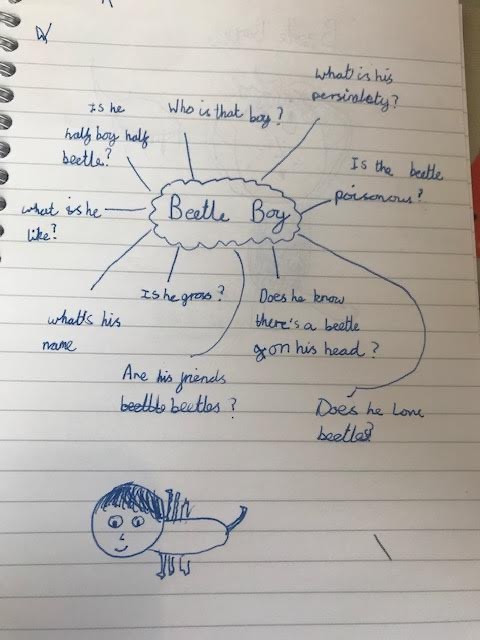 what is his
persinalety?
Is he
half boy half
beetle?
Who is that boy?
Is the beetle
poisonous?
what is he
like?
Beetle Boy
what's his
name
Is he gross?
Does he know
there's a beetle
on his head?
Are his friends
beetble beetles?
Does he Love
beetles?